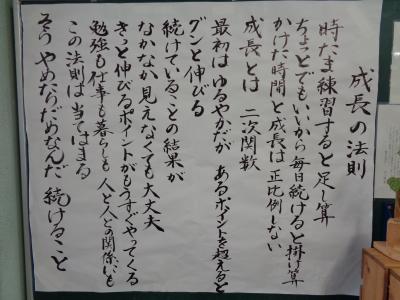 成長の法則
時たま練習すると足し算
ちょっとでもいいから毎日続けると掛け算
かけた時間と成長は正比例しない
成長とは 二次関数
最初はゆるやかだが あるポイントを超えると
グンと伸びる
続けていることの結果が
なかなか見えなくても大丈夫
きっと伸びるポイントがもうすぐやってくる
勉強も仕事も暮らしも 人と人との関係にも
この法則は当てはまる
そう やめたらだめなんだ 続けること